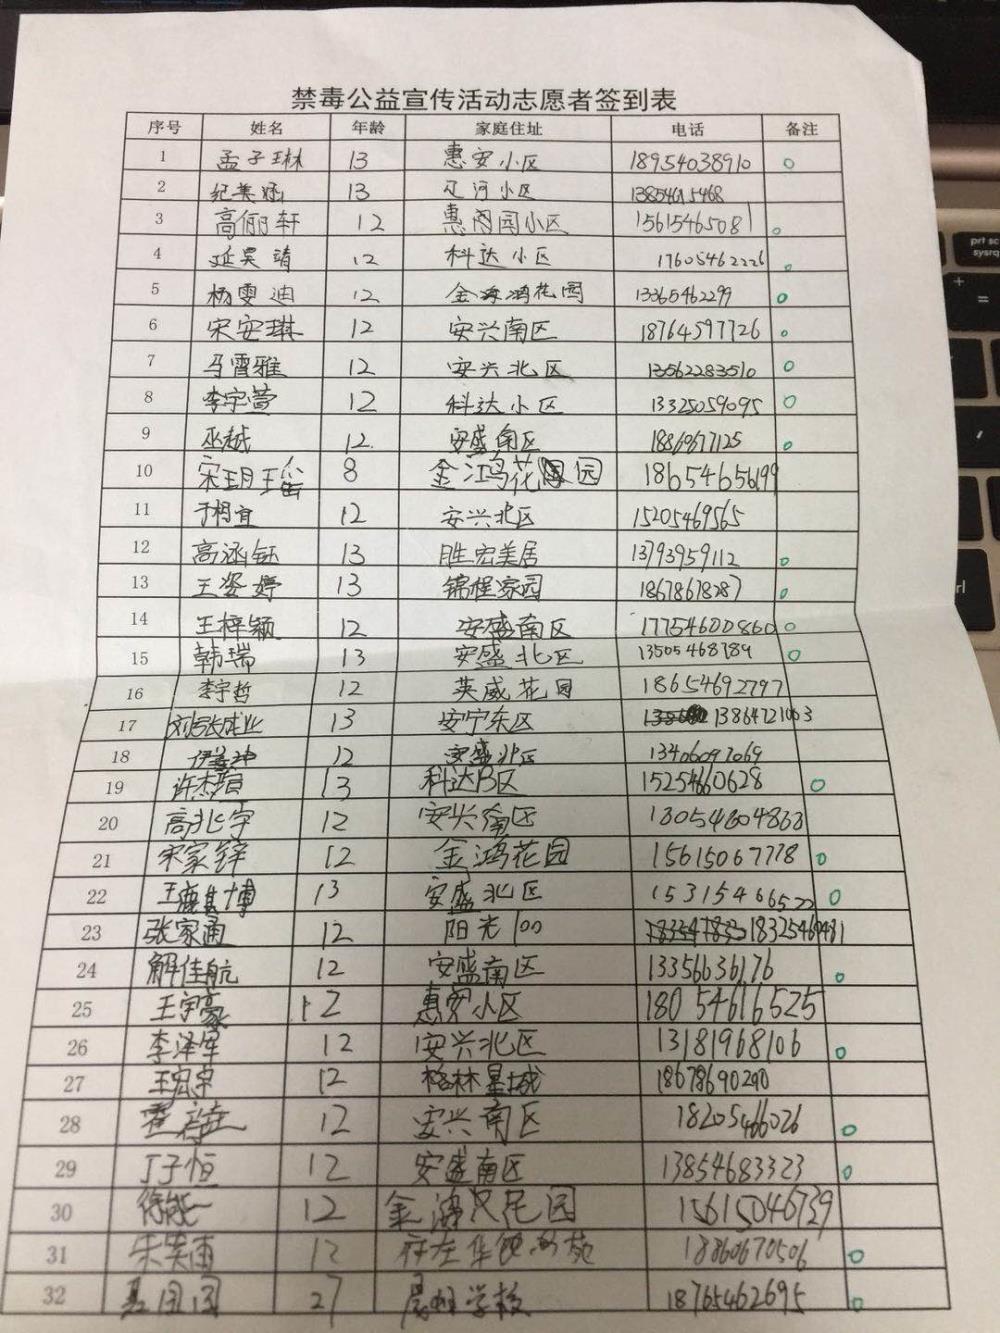 禁毒公益宣传活动志愿者签到表
序号 姓名 年龄 家庭住址 电话 备注
1 孟子琳 13 惠安小区 18954038910
2 纪美涵 13 辽河小区 13854615468
3 高俪轩 12 惠阁园小区 15615465081
4 延昊靖 12 科达小区 17605462226
5 杨雯迪 12 金鸿花园 13365462299
6 宋安琳 12 安兴南区 18764597726
7 马霄雅 12 安兴北区 13562283510
8 李宇萱 12 科达小区 13325059095
9 巫越 12 安盛南区 1886967125
10 宋玥瑶 8 金鸿花园 18654656199
11 于相宜 12 安兴北区 15205469565
12 高涵钰 13 胜宏美居 13793959112
13 王姿婷 13 锦程家园 18678678287
14 王梓颖 12 安盛南区 17754600860
15 韩瑞 13 安盛北区 13505468789
16 李宇哲 12 英威花园 18654692797
17 刘张成业 13 安宁东区 13864721003
18 12 安盛北区 13406097069
19 许杰 13 科达B区 15254660628
20 高兆宇 12 安兴南区 13054604833
21 宋家锌 12 金鸿花园 15615067778
22 王麒博 13 安盛北区 15315466522
23 张家通 12 阳光100 18325469481
24 解佳航 12 安盛南区 13356636176
25 王宇豪 12 惠安小区 18054616525
26 李泽军 12 安兴北区 13181968106
27 王宏宇 12 格林星城 18678690290
28 12 安兴南区 18205466026
29 丁子恒 12 安盛南区 13854683323
30 徐能一 12 金鸿花园 15615046739
31 宋笑雨 12 18860670506
32 27 学校 18765462695